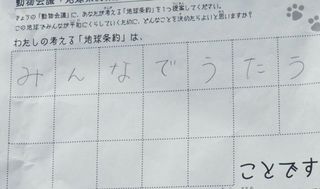 動物会議「地球条約
きょうの「動物会議」に、あなたが考える「地球条約」を1つ提案してください。
この地球でみんなが平和にくらしていくために、どんなことを決めたらよいと思いますか?
わたしの考える「地球条約」は、
みんなでうたう
ことです